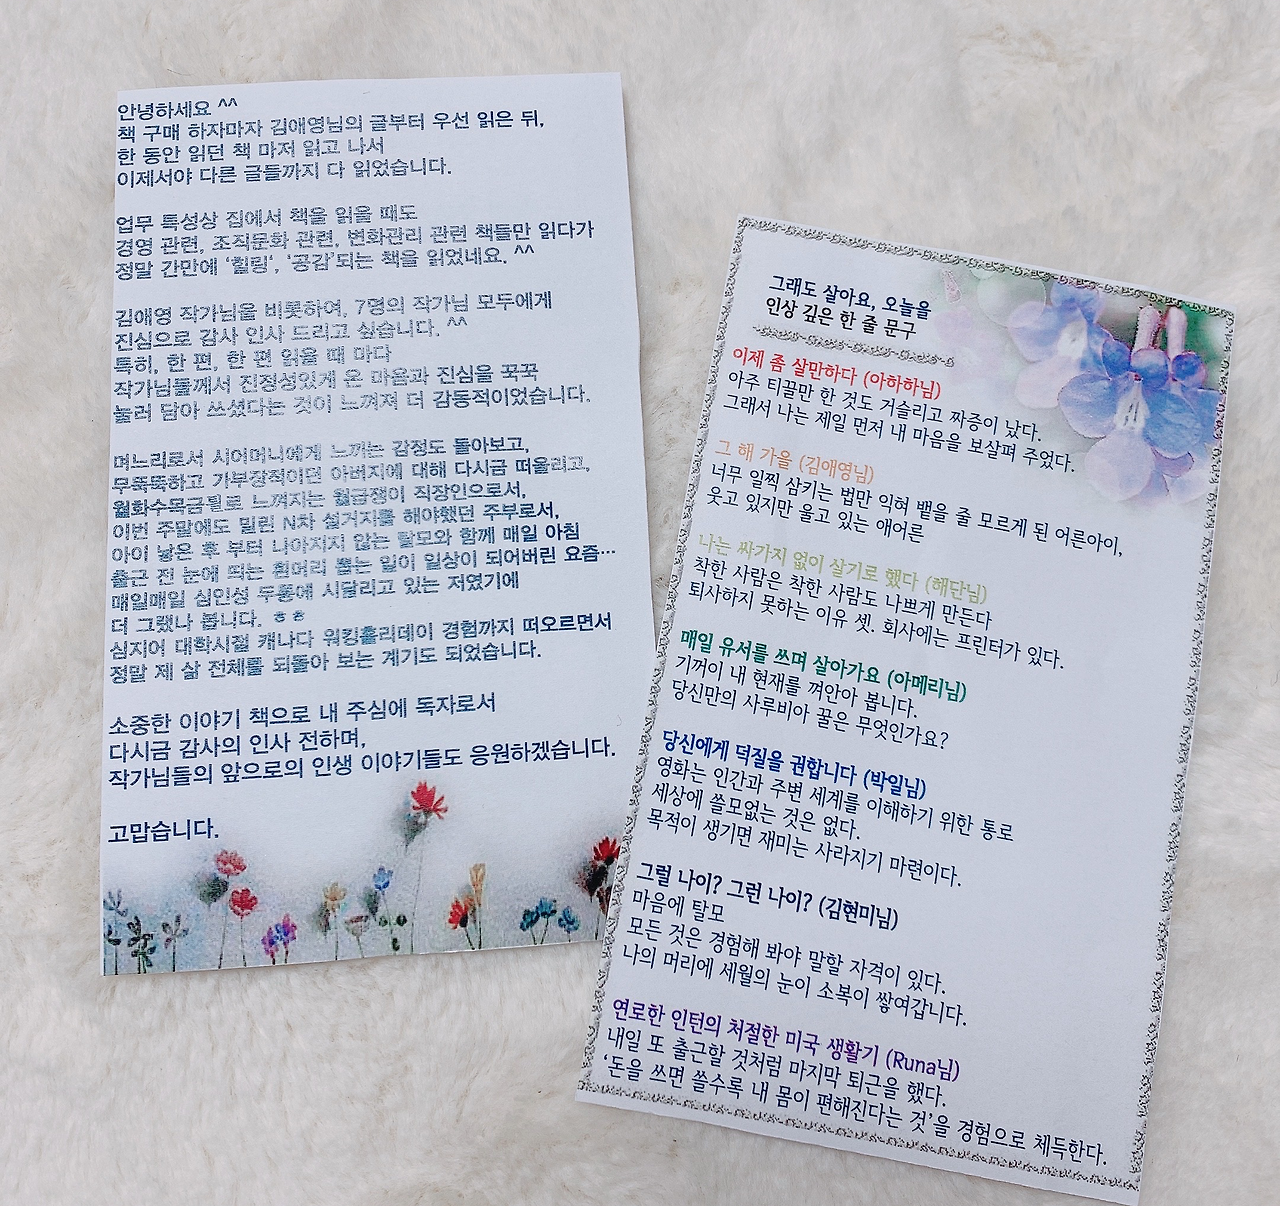 안녕하세요 ^^
책 구매 하자마자 김애영님의 글부터 우선 읽은 뒤,
한 동안 읽던 책 마저 읽고 나서
이제서야 다른 글들까지 다 읽었습니다.
업무 특성상 집에서 책을 읽을 때도
경영 관련, 조직문화 관련, 변화관리 관련 책들만 읽다가
정말 간만에 '힐링', '공감'되는 책을 읽었네요. ^^
김애영 작가님을 비롯하여, 7명의 작가님 모두에게
진심으로 감사 인사 드리고 싶습니다. ^^
특히, 한 편, 한 편 읽을 때 마다
작가님들께서 진정성있게 온 마음과 진심을 꾹꾹
눌러 담아 쓰셨다는 것이 느껴져 더 감동적이었습니다.
며느리로서 시어머니에게 느끼는 감정도 돌아보고,
무뚝뚝하고 가부장적이던 아버지에 대해 다시금 떠올리고,
월화수목금퇼로 느껴지는 월급쟁이 직장인으로서,
이번 주말에도 밀린 N차 설거지를 해야했던 주부로서,
아이 낳은 후 부터 나아지지 않는 탈모와 함께 매일 아침
출근 전 눈에 띄는 흰머리 뽑는 일이 일상이 되어버린 요즘…
매일매일 심인성 두통에 시달리고 있는 저였기에
더 그랬나 봅니다. ㅎㅎ
심지어 대학시절 캐나다 워킹홀리데이 경험까지 떠오르면서
정말 제 삶 전체를 되돌아 보는 계기도 되었습니다.
소중한 이야기 책으로 내 주심에 독자로서
다시금 감사의 인사 전하며,
작가님들의 앞으로의 인생 이야기들도 응원하겠습니다.
고맙습니다.
그래도 살아요, 오늘을
인상 깊은 한 줄 문구
이제 좀 살만하다 (아하하님)
아주 티끌만 한 것도 거슬리고 짜증이 났다.
그래서 나는 제일 먼저 내 마음을 보살펴 주었다.
그 해 가을 (김애영님)
너무 일찍 삼키는 법만 익혀 뱉을 줄 모르게 된 어른아이,
웃고 있지만 울고 있는 애어른
나는 싸가지 없이 살기로 했다 (해단님)
착한 사람은 착한 사람도 나쁘게 만든다
퇴사하지 못하는 이유 셋. 회사에는 프린터가 있다.
매일 유서를 쓰며 살아가요 (아메리님)
기꺼이 내 현재를 껴안아 봅니다.
당신만의 사루비아 꿀은 무엇인가요?
당신에게 덕질을 권합니다 (박일님)
영화는 인간과 주변 세계를 이해하기 위한 통로
세상에 쓸모없는 것은 없다.
목적이 생기면 재미는 사라지기 마련이다.
그럴 나이? 그런 나이? (김현미님)
마음에 탈모
모든 것은 경험해 봐야 말할 자격이 있다.
나의 머리에 세월의 눈이 소복이 쌓여갑니다.
연로한 인턴의 처절한 미국 생활기 (Runa님)
내일 또 출근할 것처럼 마지막 퇴근을 했다.
'돈을 쓰면 쓸수록 내 몸이 편해진다는 것'을 경험으로 체득한다.